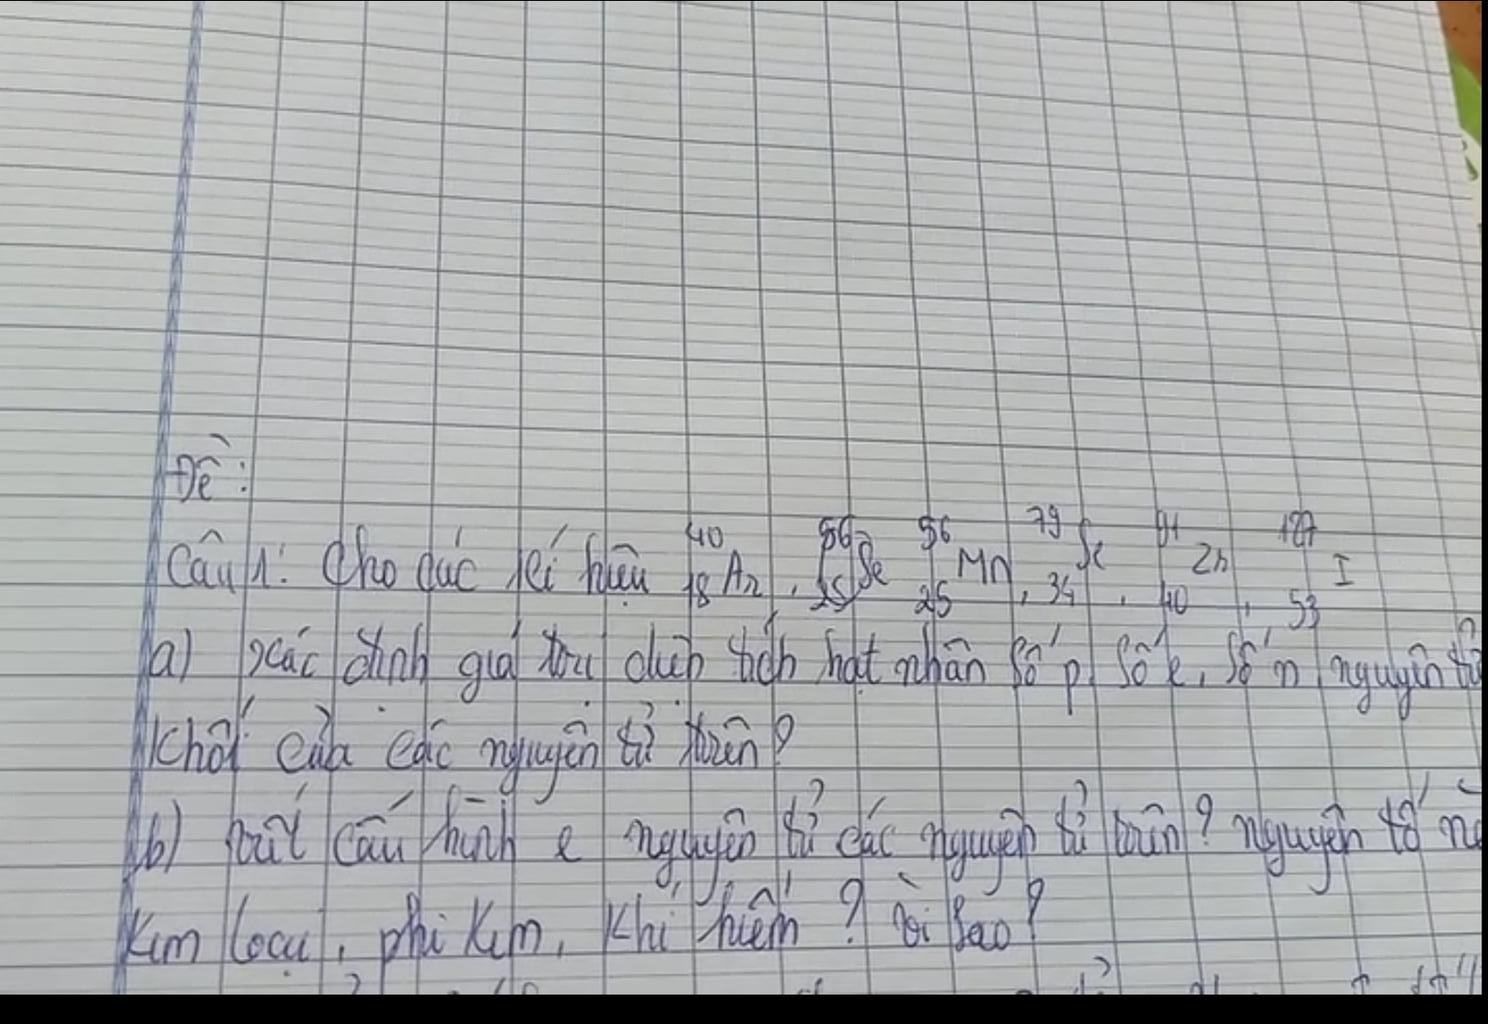 Đề:
Câu 1: Cho các kí hiệu ⁴⁰₁₈Ar, ⁵⁶₂₅Mn, ⁷⁹₃₄Se, ⁹¹₄₀Zr, ¹²⁷₅₃I
a) xác định giá trị điện tích hạt nhân số p, số e, số n nguyên tử
khối của các nguyên tử trên?
b) viết cấu hình e nguyên tử các nguyên tử trên? nguyên tố
kim loại, phi kim, khí hiếm? Vì sao?